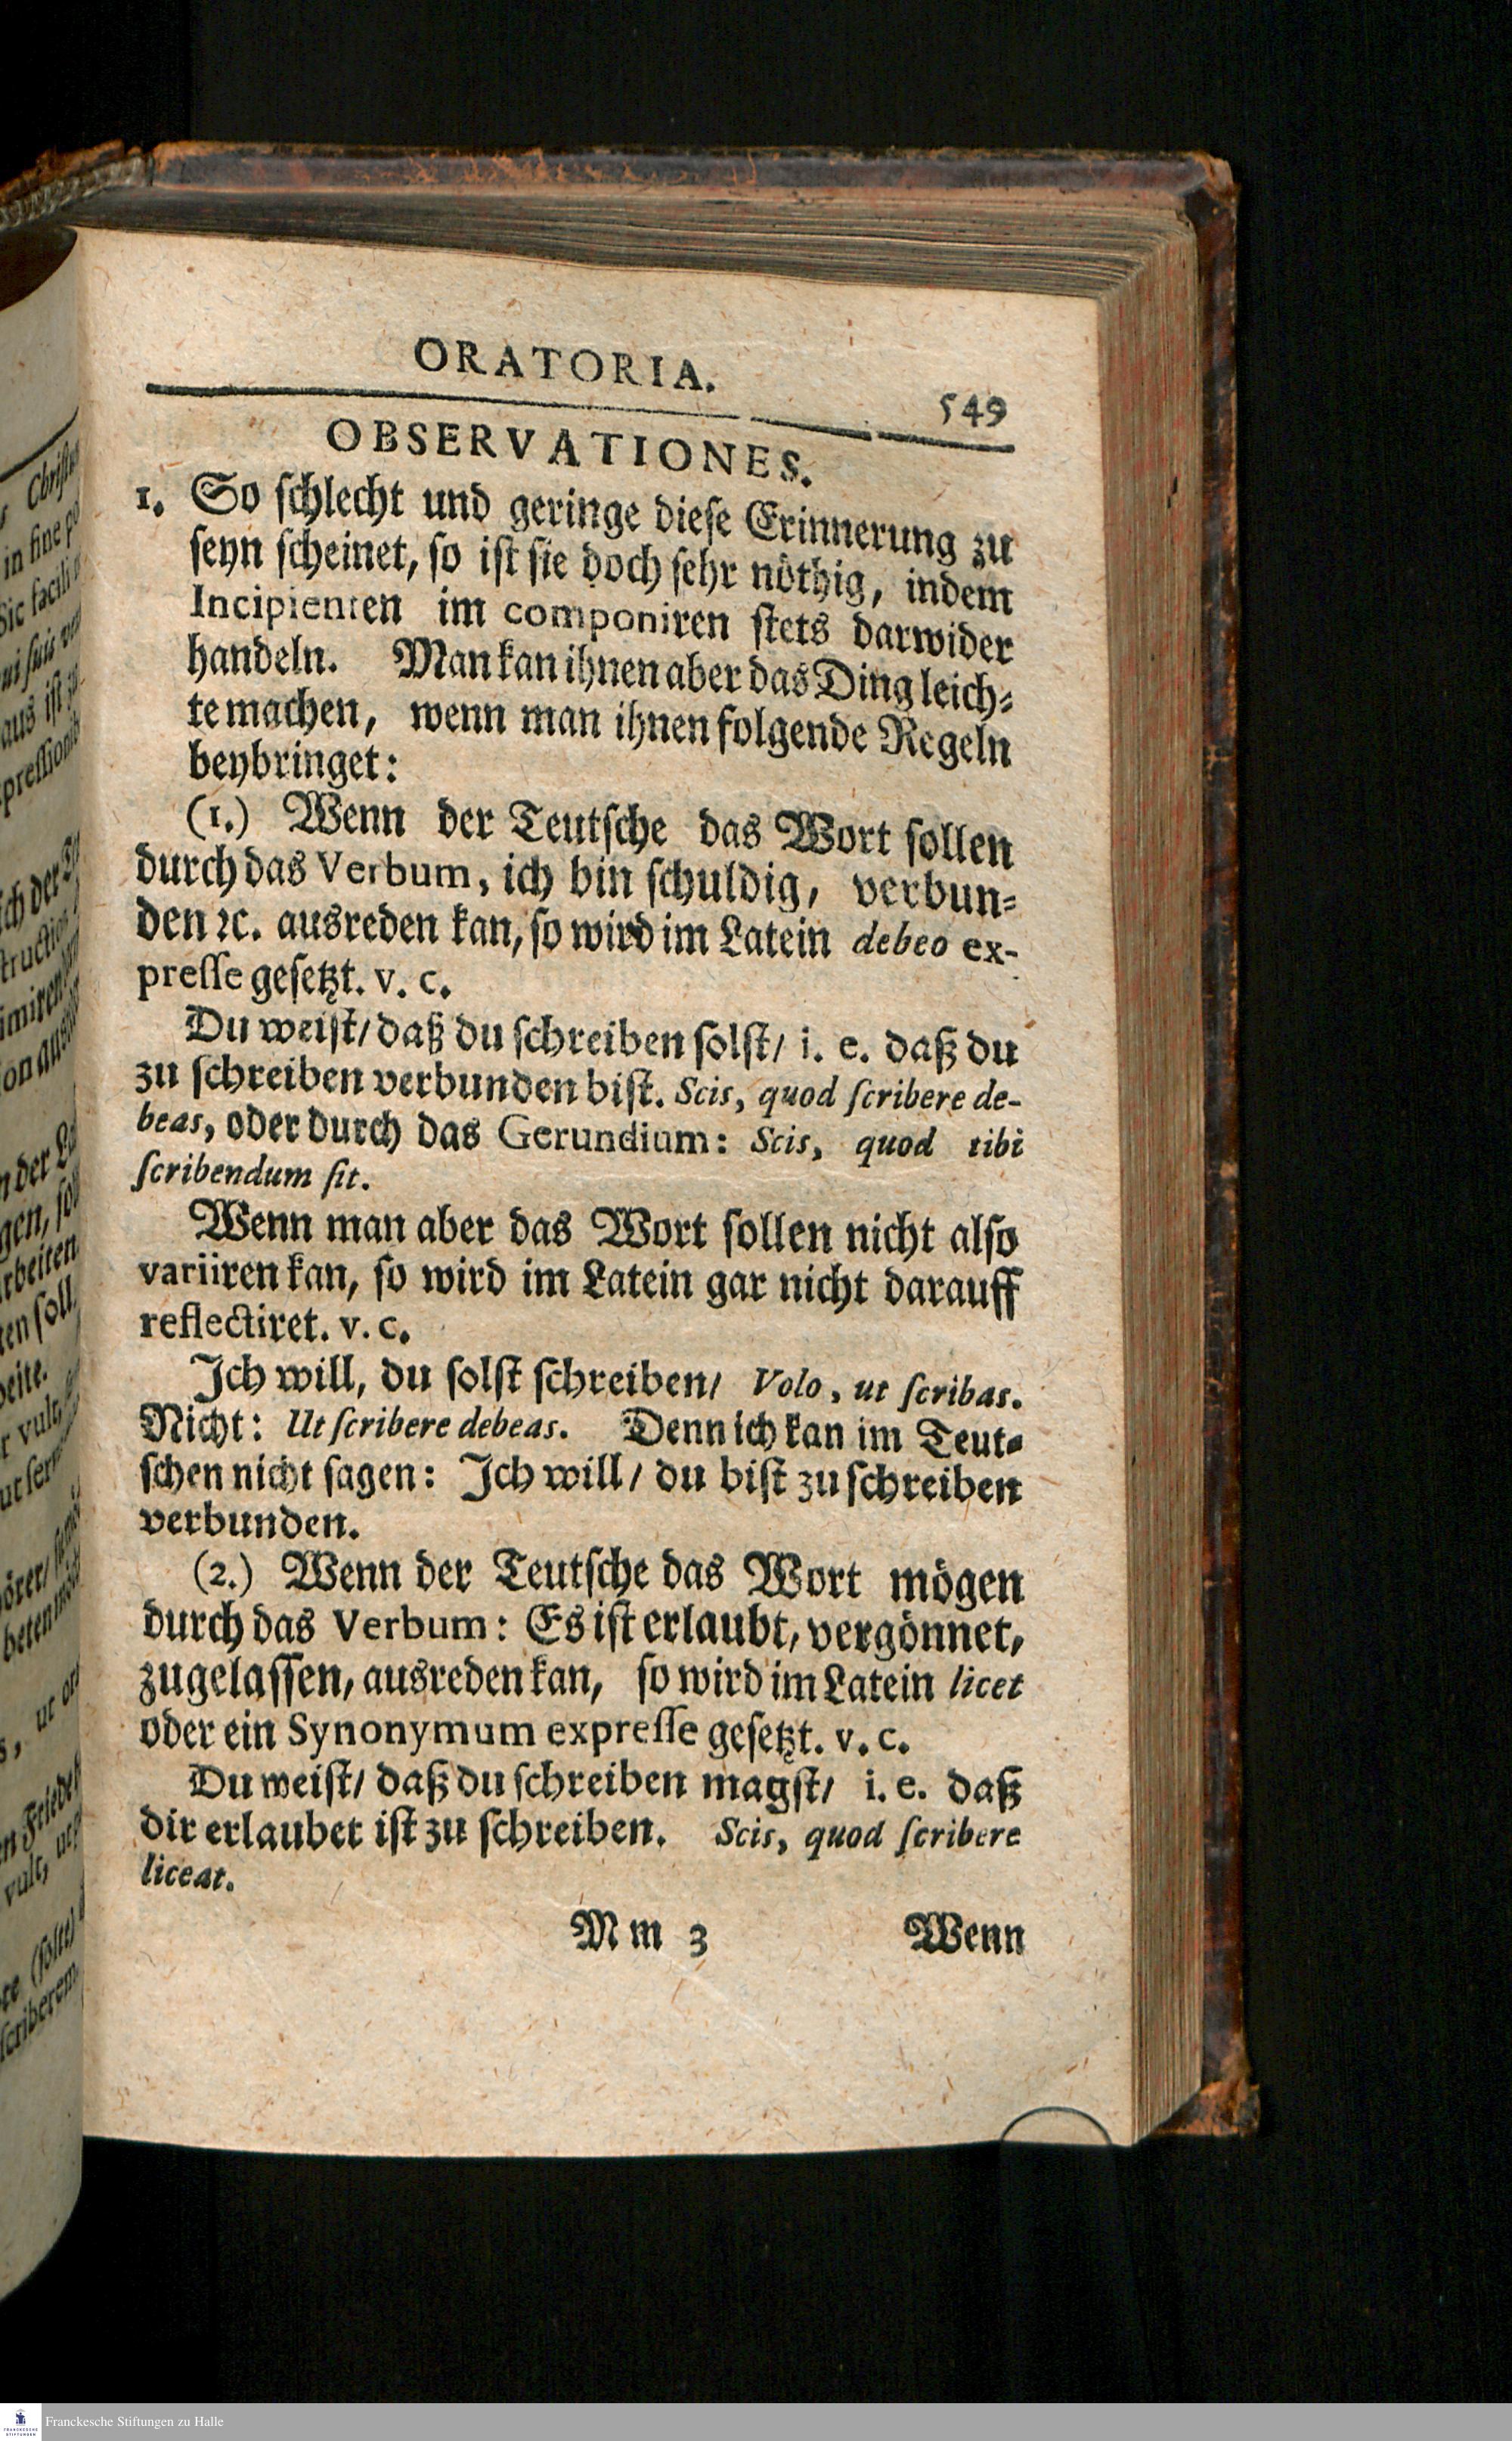 ORATORIA.
549
OBSERVATIONES.
1. So ſchlecht und geringe dieſe Erinnerung zu
ſeyn ſcheinet, ſo iſt ſie doch ſehr nöthig, indem
Incipienten im componiren ſtets darwider
handeln. Man kan ihnen aber das Ding leich⸗
te machen, wenn man ihnen folgende Regeln
beybringet:
(1.) Wenn der Teutſche das Wort ſollen
durch das Verbum, ich bin ſchuldig, verbun⸗
den ꝛc. ausreden kan, ſo wird im Latein debeo ex-
preſſe geſetzt. v. c.
Du weiſt/ daß du ſchreiben ſolſt/ i. e. daß du
zu ſchreiben verbunden biſt. Scis, quod ſcribere de-
beas, oder durch das Gerundium: Scis, quod tibi
ſcribendum ſit.
Wenn man aber das Wort ſollen nicht alſo
variiren kan, ſo wird im Latein gar nicht darauff
reflectiret. v. c.
Ich will, du ſolſt ſchreiben/ Volo, ut ſcribas.
Nicht: Ut ſcribere debeas. Denn ich kan im Teut⸗
ſchen nicht ſagen: Ich will/ du biſt zu ſchreiben
verbunden.
(2.) Wenn der Teutſche das Wort mögen
durch das Verbum: Es iſt erlaubt, vergönnet,
zugelaſſen, ausreden kan, ſo wird im Latein licet
oder ein Synonymum expreſſe geſetzt. v. c.
Du weiſt/ daß du ſchreiben magſt/ i. e. daß
dir erlaubet iſt zu ſchreiben. Scis, quod ſcribere
liceat.
Mm 3 Wenn
Franckesche Stiftungen zu Halle